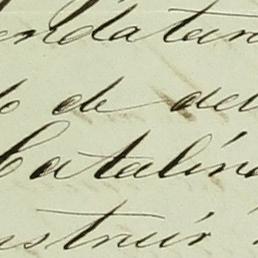 endatari
o de del
Catalina
nstruir